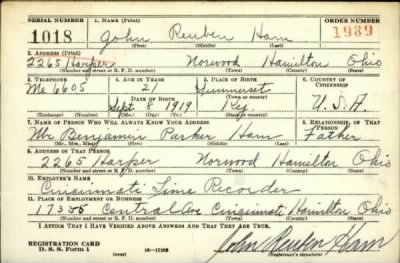 SERIAL NUMBER 1. NAME (Print) ORDER NUMBER
1018 John Reuben Ham 1989
(First) (Middle) (Last)
2. ADDRESS (Print)
2265 Harper Norwood Hamilton Ohio
(Number and street or R. F. D. number) (Town) (County) (State)
3. TELEPHONE 4. AGE IN YEARS 5. PLACE OF BIRTH 6. COUNTRY OF CITIZENSHIP
Me 6605 21 Summerset
DATE OF BIRTH (Town or county)
Sept 8 1919 Ky U.S.A.
(Exchange) (Number) (Mo.) (Day) (Yr.) (State or country)
7. NAME OF PERSON WHO WILL ALWAYS KNOW YOUR ADDRESS 8. RELATIONSHIP OF THAT PERSON
Mr Benjamin Parker Ham Father
(Mr., Mrs., Miss) (First) (Middle) (Last)
9. ADDRESS OF THAT PERSON
2265 Harper Norwood Hamilton Ohio
(Number and street or R. F. D. number) (Town) (County) (State)
10. EMPLOYER'S NAME
Cincinnati Time Recorder
11. PLACE OF EMPLOYMENT OR BUSINESS
Central Ave Cincinnati Hamilton Ohio
(Number and street or R. F. D. number) (Town) (County) (State)
I AFFIRM THAT I HAVE VERIFIED ABOVE ANSWERS AND THAT THEY ARE TRUE.
REGISTRATION CARD
D. S. S. Form 1 16—17105 John Reuben Ham
(Registrant's signature)